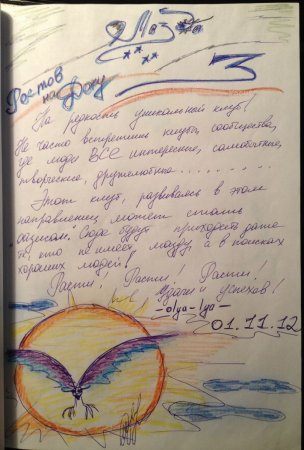 Мазда
3
Ростов
на Дону
На редкость уникальный клуб!
Не часто встретишь клубы, сообщества,
где люди ВСЕ интересные, самобытные,
творческие, дружелюбные.........
Этот клуб, развиваясь в этом
направлении, может стать
"оазисом". Сюда будут приходить даже
те, кто не имеет мазду, а в поисках
хороших людей!
Расти! Расти! Расти!
Удачи и успехов!
-olya-lya-
01.11.12